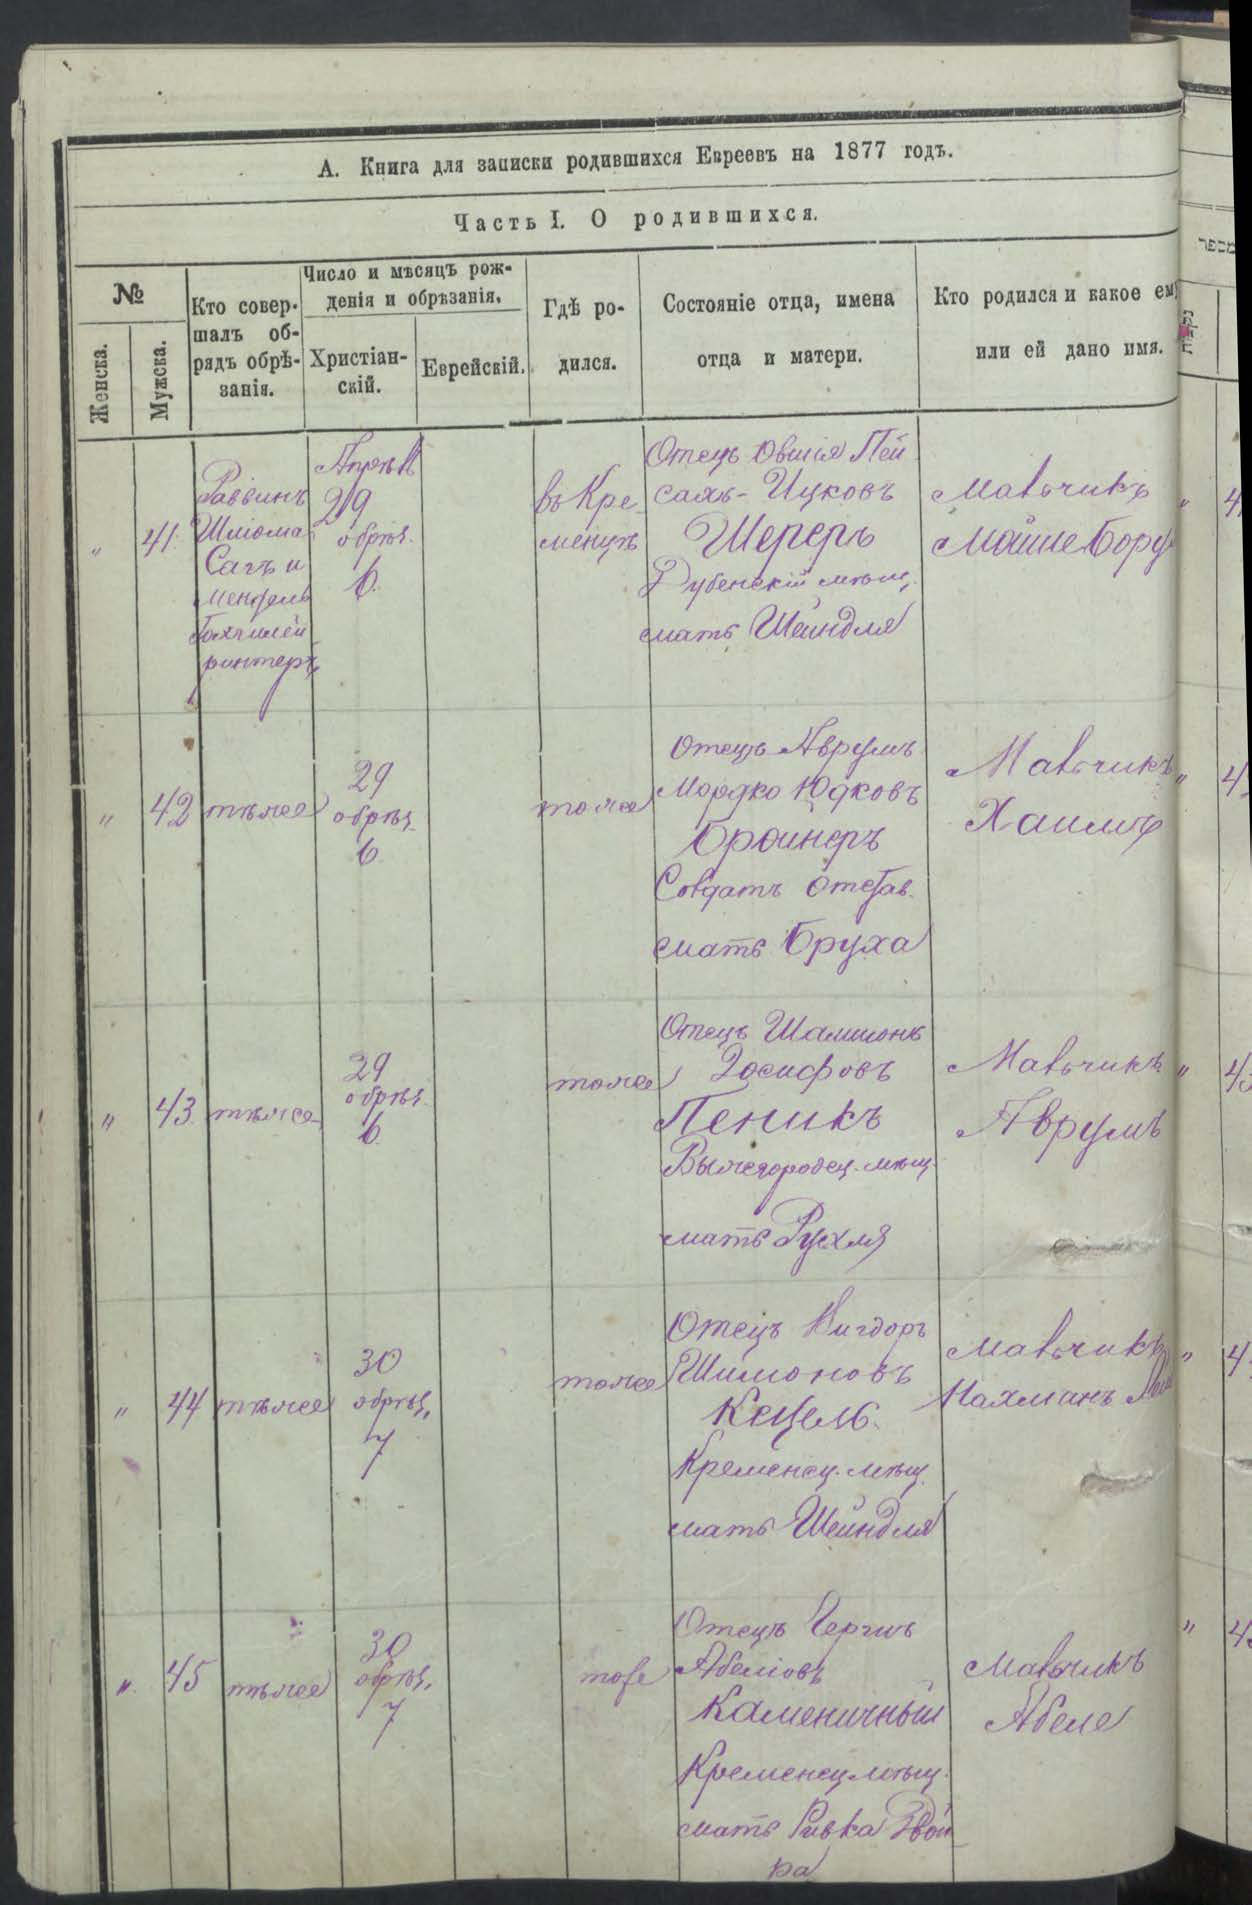 А. Книга для записки родившихся Евреевъ на 1877 годъ.
Часть I. О родившихся.
№
Женска.
Мужска.
Кто совер-
шалъ об-
рядъ обрѣ-
занія.
Число и мѣсяцъ рож-
денія и обрѣзанія.
Христіан-
скій.
Еврейскій.
Гдѣ ро-
дился.
Состояніе отца, имена
отца и матери.
Кто родился и какое ему
или ей дано имя.
„
41.
Раввинъ
Шліома
Сагъ и
Мендель
Апрѣль
29
обрѣз.
6.
въ Кре-
менцѣ
Отецъ Овшія Пей
сахъ-Ицковъ
Шереръ
Дубенскій мѣщ.
мать Шейндля
Мальчикъ
Мойше Бору
„
42
тѣже
29
обрѣз.
6.
тоже
Отецъ Аврумъ
Мордко Юдковъ
Бройнеръ
Солдатъ отстав.
мать Бруха
Мальчикъ
Хаимъ
„
43.
тѣже
29
обрѣз.
6.
тоже
Отецъ Шамшонъ
Іосифовъ
Пеникъ
Вышегородец. мѣщ.
мать Рухля
Мальчикъ
Аврумъ
„
44
тѣже
30
обрѣз.
7
тоже
Отецъ Вигдоръ
Шимоновъ
Кецель.
Кременец. мѣщ.
мать Шейндля
Мальчикъ
Нахманъ
„
45
тѣже
30
обрѣз.
7
тоже
Отецъ Гершъ
Абеліовъ
Каменичный
Кременец мѣщ.
мать Ривка Двой-
ра
Мальчикъ
Абеле